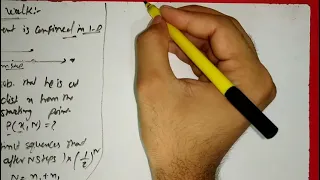 walk:-
ent is confined in 1-D
prob. that he is at
dist x from the
starting point
P(x, N) = ?
sequences that
after N steps )x(1/2)^N
N = n₁ + n₂